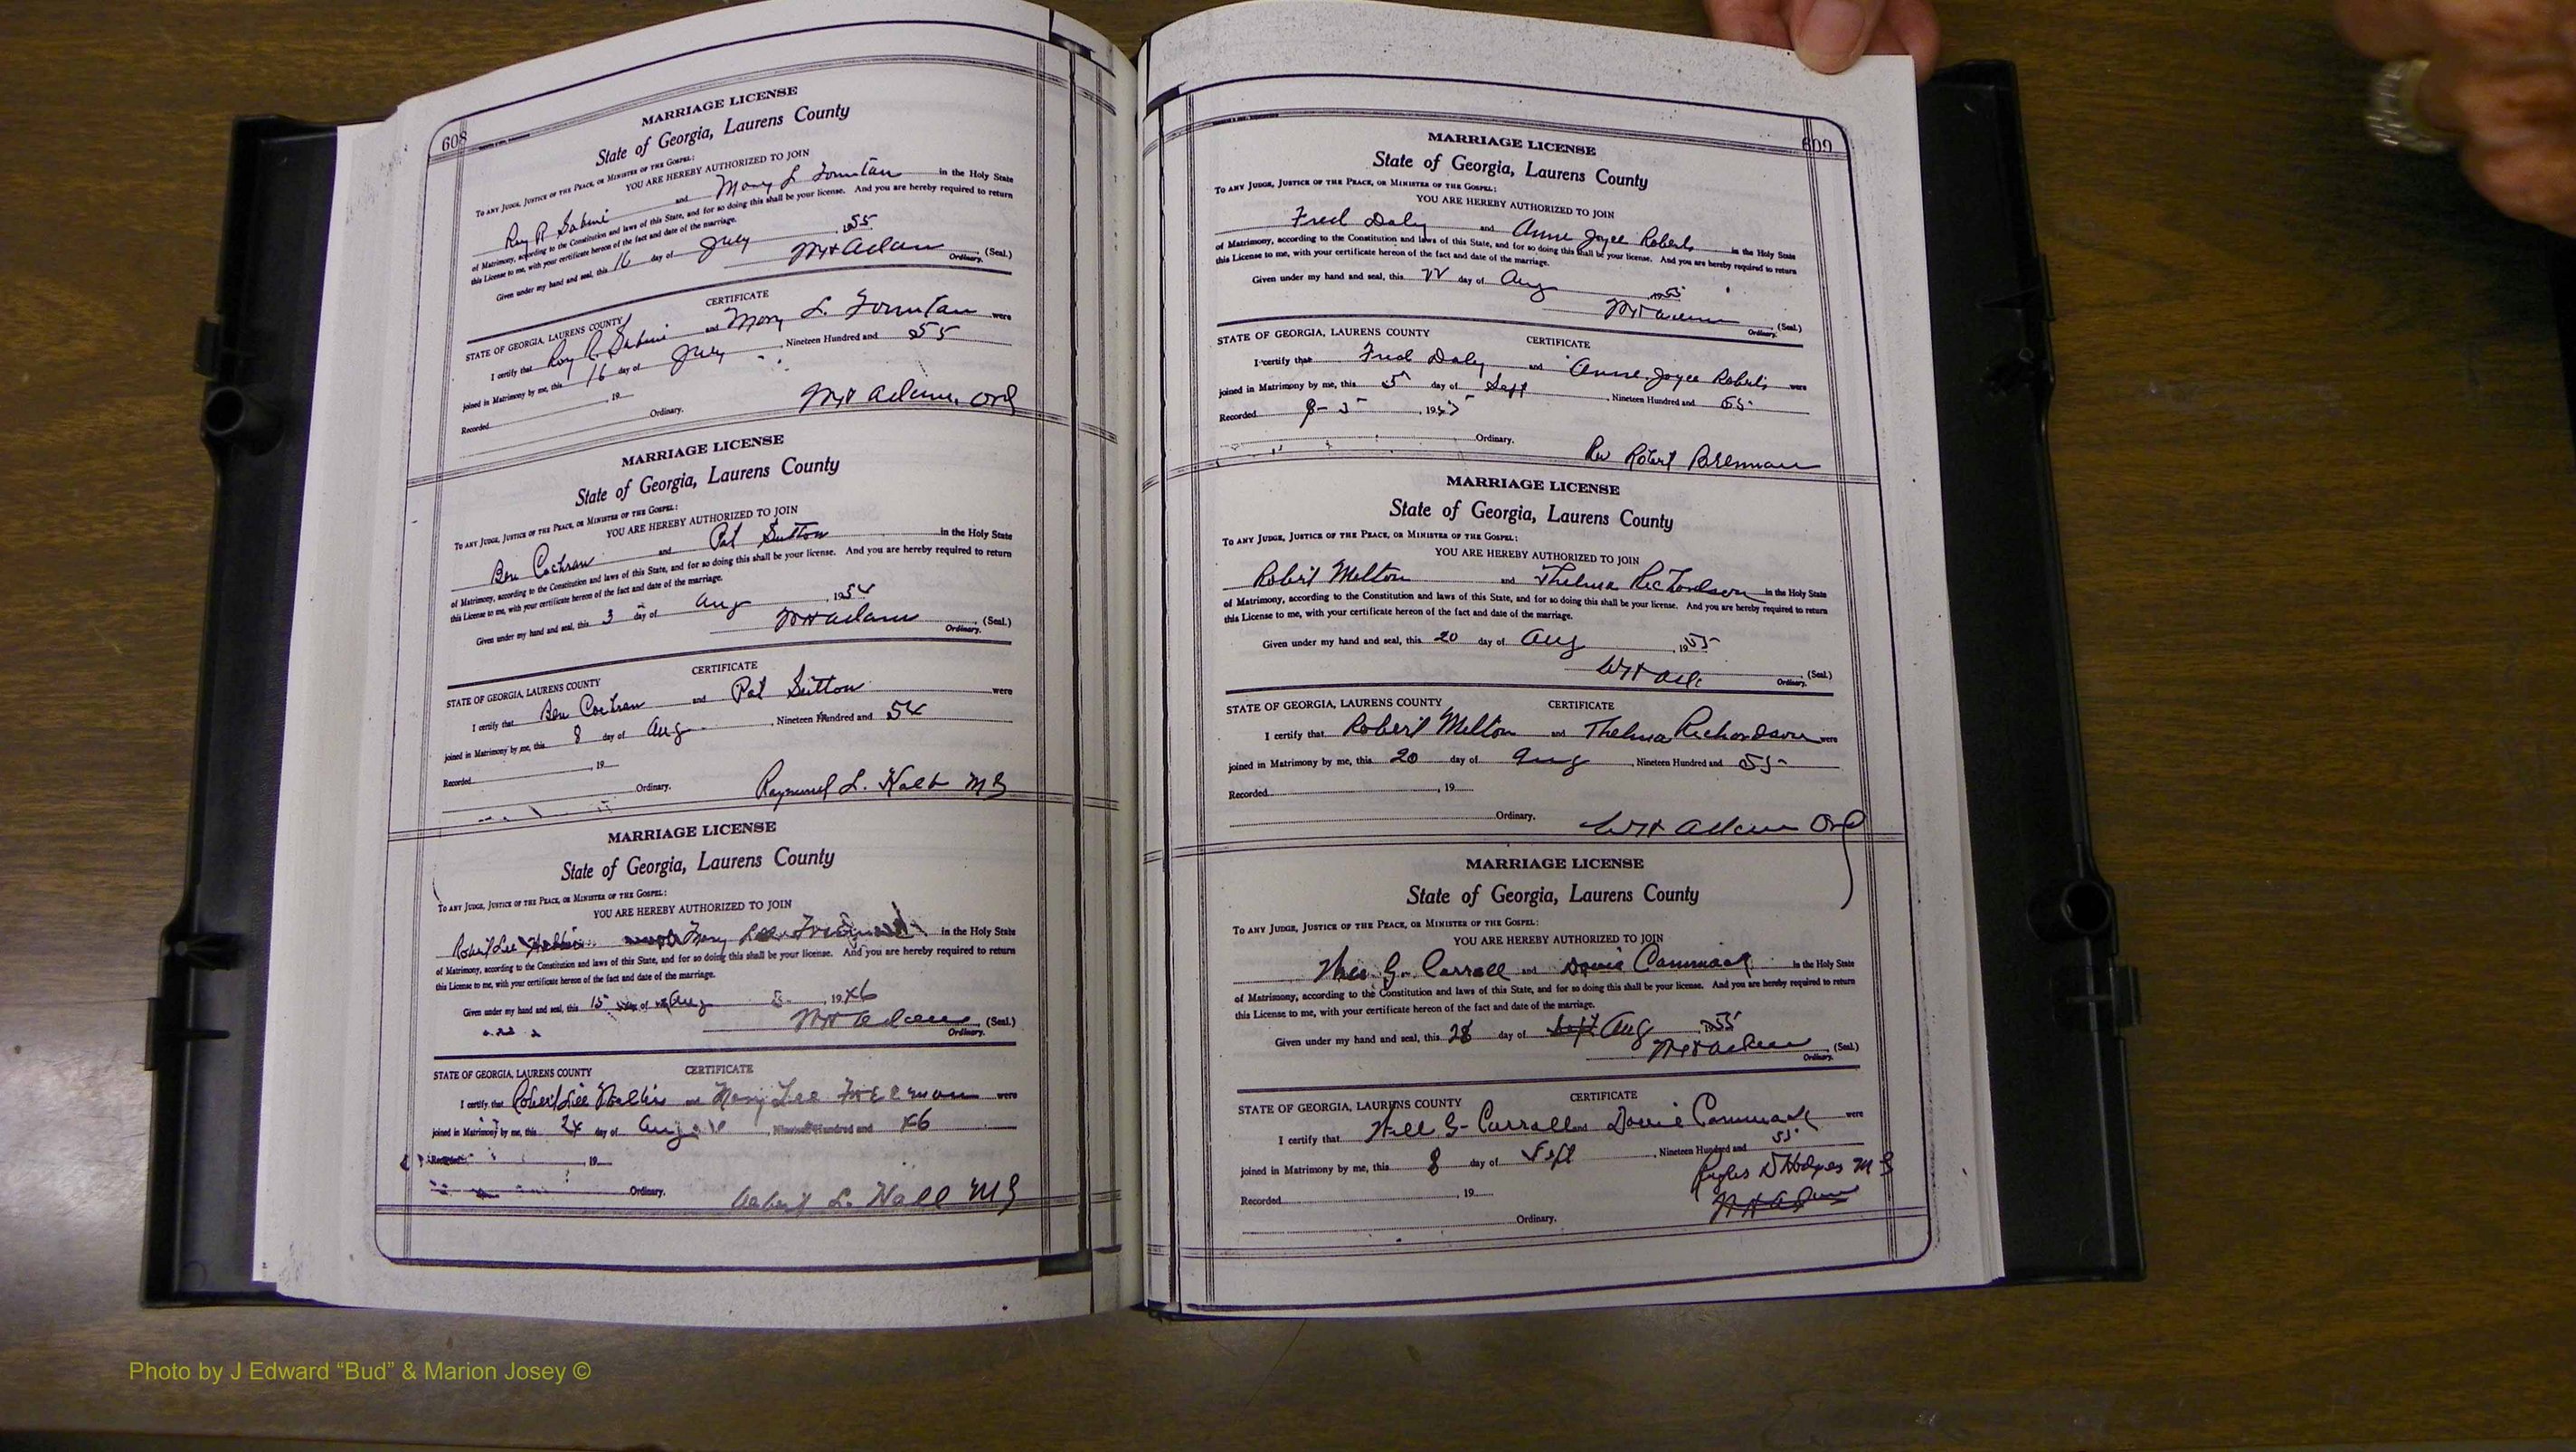 608
MARRIAGE LICENSE
State of Georgia, Laurens County
To ANY JUDGE, JUSTICE OF THE PEACE, OR MINISTER OF THE GOSPEL:
YOU ARE HEREBY AUTHORIZED TO JOIN
Roy R. Sabini and Mary L Fountan in the Holy State
of Matrimony, according to the Constitution and laws of this State, and for so doing this shall be your license. And you are hereby required to return
this License to me, with your certificate hereon of the fact and date of the marriage.
Given under my hand and seal, this 16 day of July 1955
WH Adams (Seal.)
Ordinary.
CERTIFICATE
STATE OF GEORGIA, LAURENS COUNTY
I certify that Roy R. Sabini and Mary L. Fountan were
joined in Matrimony by me, this 16 day of July, Nineteen Hundred and 55
Recorded 19
Ordinary. WH Adams Ord
MARRIAGE LICENSE
State of Georgia, Laurens County
To ANY JUDGE, JUSTICE OF THE PEACE, OR MINISTER OF THE GOSPEL:
YOU ARE HEREBY AUTHORIZED TO JOIN
Ben Cochran and Pat Sutton in the Holy State
of Matrimony, according to the Constitution and laws of this State, and for so doing this shall be your license. And you are hereby required to return
this License to me, with your certificate hereon of the fact and date of the marriage.
Given under my hand and seal, this 3 day of Aug, 1954
WH Adams (Seal.)
Ordinary.
CERTIFICATE
STATE OF GEORGIA, LAURENS COUNTY
I certify that Ben Cochran and Pat Sutton were
joined in Matrimony by me, this 8 day of Aug, Nineteen Hundred and 54
Recorded, 19
Ordinary. Raymond L. Kalb MG
MARRIAGE LICENSE
State of Georgia, Laurens County
To ANY JUDGE, JUSTICE OF THE PEACE, OR MINISTER OF THE GOSPEL:
YOU ARE HEREBY AUTHORIZED TO JOIN
Robert Lee in the Holy State
of Matrimony, according to the Constitution and laws of this State, and for so doing this shall be your license. And you are hereby required to return
this License to me, with your certificate hereon of the fact and date of the marriage.
Given under my hand and seal, this 15 day of Aug, 1946
WH Adams (Seal.)
Ordinary.
CERTIFICATE
STATE OF GEORGIA, LAURENS COUNTY
I certify that Robert Lee and Mary Lee were
joined in Matrimony by me, this 24 day of Aug, Nineteen Hundred and 46
Recorded, 19
Ordinary. L. Hall MG
609
MARRIAGE LICENSE
State of Georgia, Laurens County
To ANY JUDGE, JUSTICE OF THE PEACE, OR MINISTER OF THE GOSPEL:
YOU ARE HEREBY AUTHORIZED TO JOIN
Fred Daly and Anne Joyce Roberts in the Holy State
of Matrimony, according to the Constitution and laws of this State, and for so doing this shall be your license. And you are hereby required to return
this License to me, with your certificate hereon of the fact and date of the marriage.
Given under my hand and seal, this 22 day of Aug, 1955
WH Adams (Seal.)
Ordinary.
STATE OF GEORGIA, LAURENS COUNTY
CERTIFICATE
I certify that Fred Daly and Anne Joyce Roberts were
joined in Matrimony by me, this 5 day of Sept, Nineteen Hundred and 55
Recorded 9-5, 1955
Ordinary. Rev Robert Brennan
MARRIAGE LICENSE
State of Georgia, Laurens County
To ANY JUDGE, JUSTICE OF THE PEACE, OR MINISTER OF THE GOSPEL:
YOU ARE HEREBY AUTHORIZED TO JOIN
Robert Melton and Thelma Richardson in the Holy State
of Matrimony, according to the Constitution and laws of this State, and for so doing this shall be your license. And you are hereby required to return
this License to me, with your certificate hereon of the fact and date of the marriage.
Given under my hand and seal, this 20 day of Aug, 1955
WH (Seal.)
Ordinary.
STATE OF GEORGIA, LAURENS COUNTY
CERTIFICATE
I certify that Robert Melton and Thelma Richardson were
joined in Matrimony by me, this 20 day of Aug, Nineteen Hundred and 55
Recorded, 19
Ordinary. WH Adams Ord
MARRIAGE LICENSE
State of Georgia, Laurens County
To ANY JUDGE, JUSTICE OF THE PEACE, OR MINISTER OF THE GOSPEL:
YOU ARE HEREBY AUTHORIZED TO JOIN
G. Carroll and Cammack in the Holy State
of Matrimony, according to the Constitution and laws of this State, and for so doing this shall be your license. And you are hereby required to return
this License to me, with your certificate hereon of the fact and date of the marriage.
Given under my hand and seal, this 28 day of Sept Aug, 1955
WH Adams (Seal.)
Ordinary.
CERTIFICATE
STATE OF GEORGIA, LAURENS COUNTY
I certify that G Carroll and Cammack were
joined in Matrimony by me, this 8 day of Sept, Nineteen Hundred and 55
Hodges MG
Recorded, 19
WH Adams
Ordinary.
Photo by J Edward “Bud” & Marion Josey ©